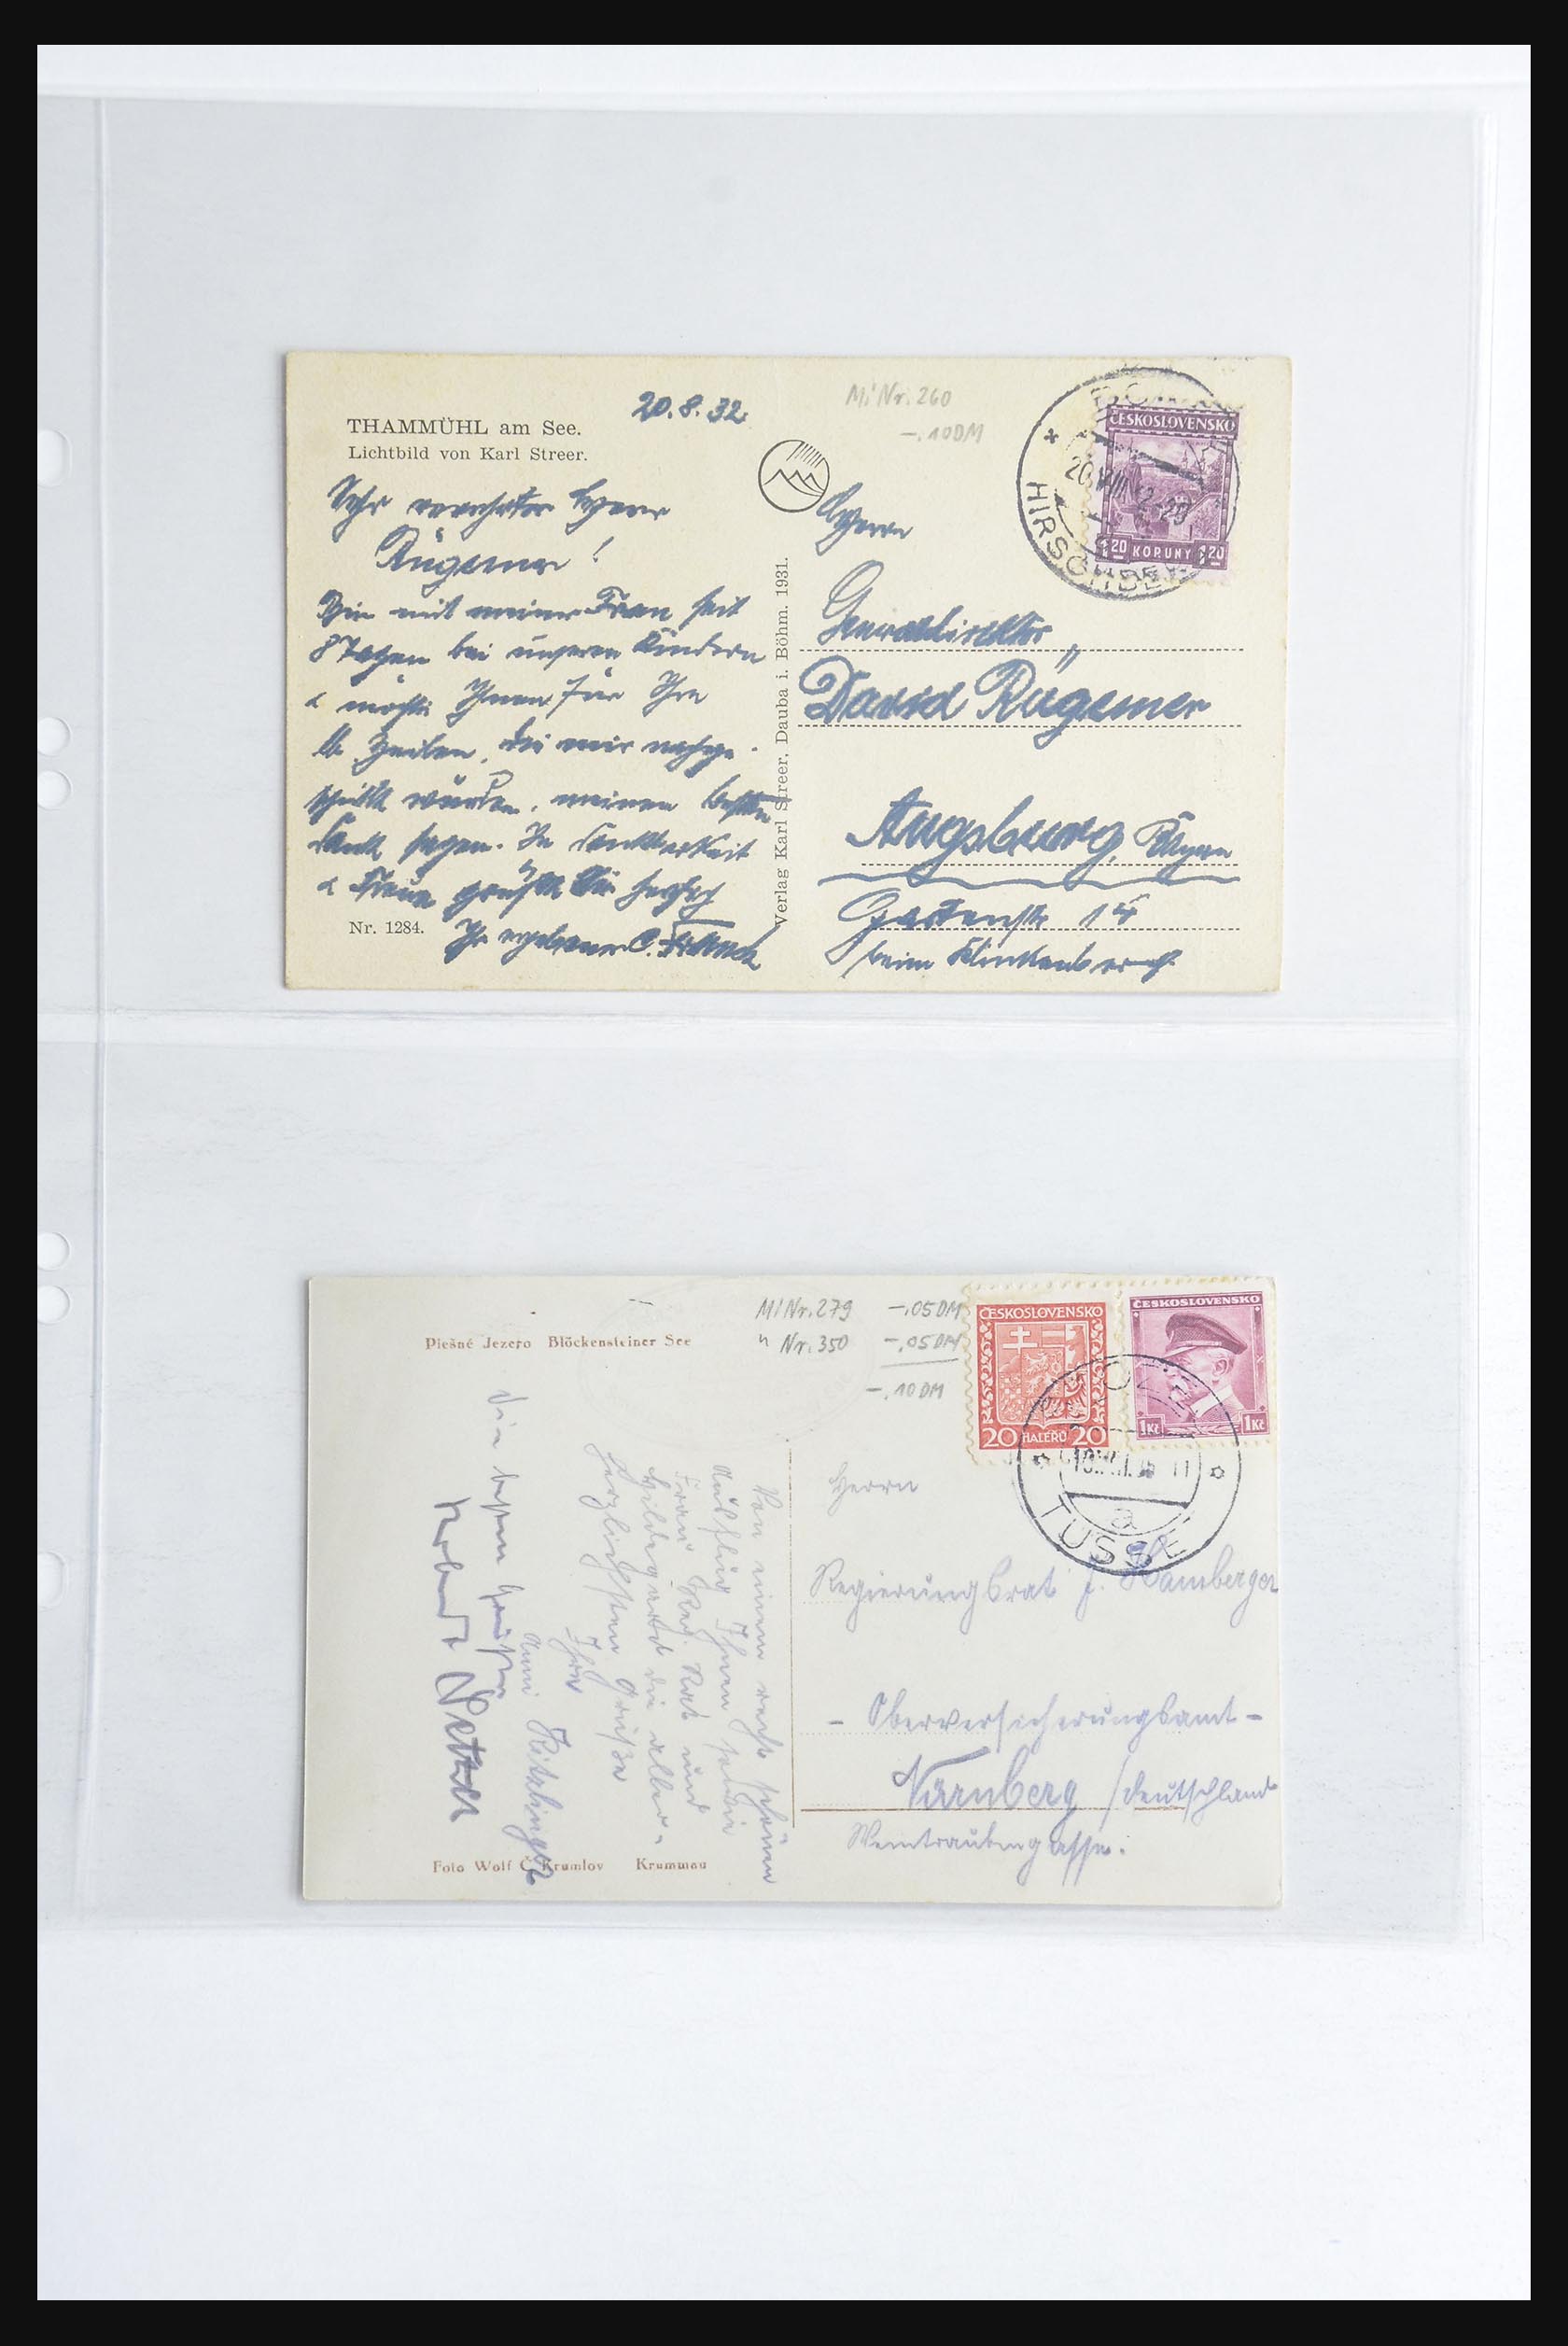 THAMMÜHL am See.
Lichtbild von Karl Streer.
20.8.32
Mi Nr. 260
-.10 DM
ČESKOSLOVENSKO
1.20 KORUNY 1.20
20.VIII.32-20
HIRSCH
Sehr verehrter Herr
Rügemer!
Bin mit meiner Frau seit
8 Tagen bei unseren Kindern
& möchte Ihnen für Ihre
lb. Zeilen, die mir nachge-
schickt wurden, meinen besten
Dank sagen. In Dankbarkeit
& Treue grüßt Sie herzlich
Ihr ergebener C.
Nr. 1284.
Verlag Karl Streer, Dauba i. Böhm. 1931.
Herrn
Generaldirektor
David Rügemer
Augsburg, Bayern
14
beim
Plešné Jezero Blöckensteiner See
Mi Nr. 279 -.05 DM
" Nr. 350 -.05 DM
-.10 DM
ČESKOSLOVENSKO
20 HALÉŘŮ 20
ČESKOSLOVENSKO
1 Kč 1 Kč
a
TUSSET
Von einem recht schönen
Ausflug Ihnen sowie
Frau Reg. Rat und
Hildegard die aller-
herzlichsten Grüße
Ihre
Anni Kitzinger
Die besten Grüße
Netzer
Foto Wolf Č. Krumlov Krummau
Herrn
Regierungsrat J. Hamberger
- Oberversicherungsamt -
Nürnberg / Deutschland
Weintraubengasse.